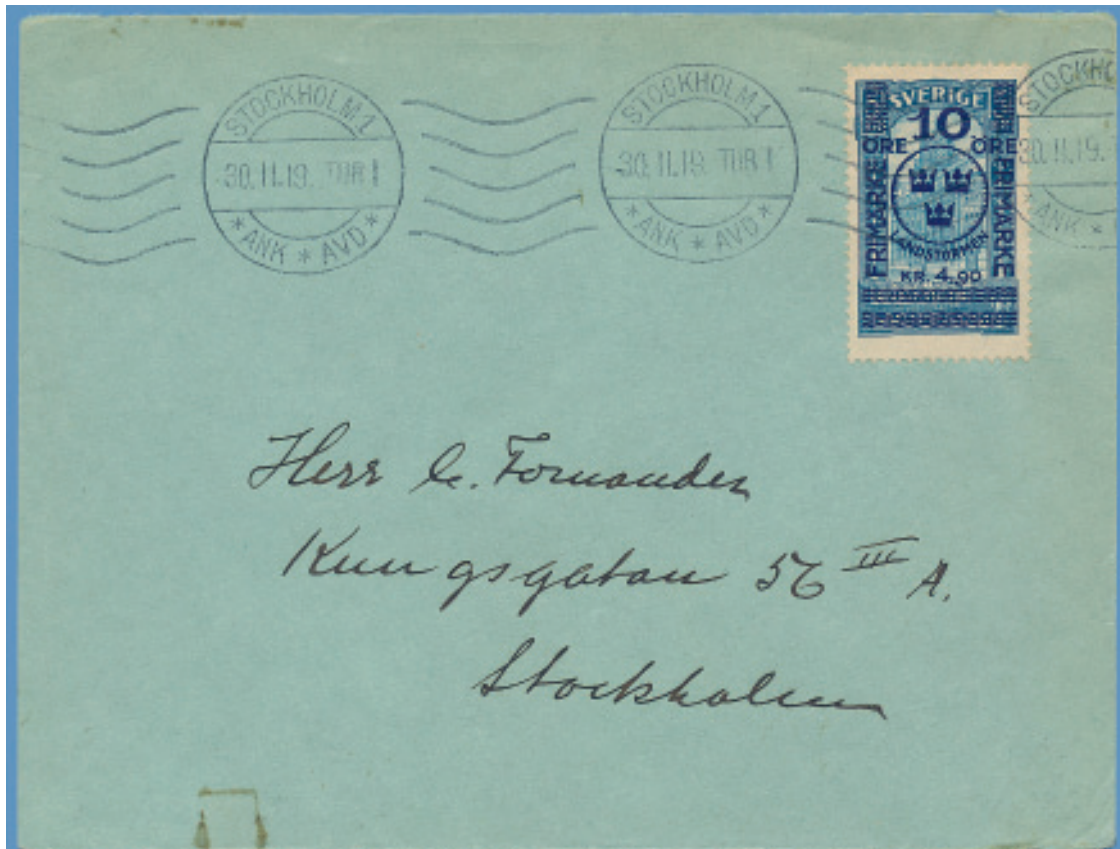 STOCKHOLM 1
30.11.19. TUR 1
* ANK * AVD *
STOCKHOLM 1
30.11.19. TUR 1
* ANK * AVD *
STOCKH
30.11.19.
ANK *
SVERIGE
10
ÖRE ÖRE
FRIMÄRKE FRIMÄRKE
LANDSTORMEN
KR. 4,90
Herr C. Fornander
Kungsgatan 56 III A.
Stockholm